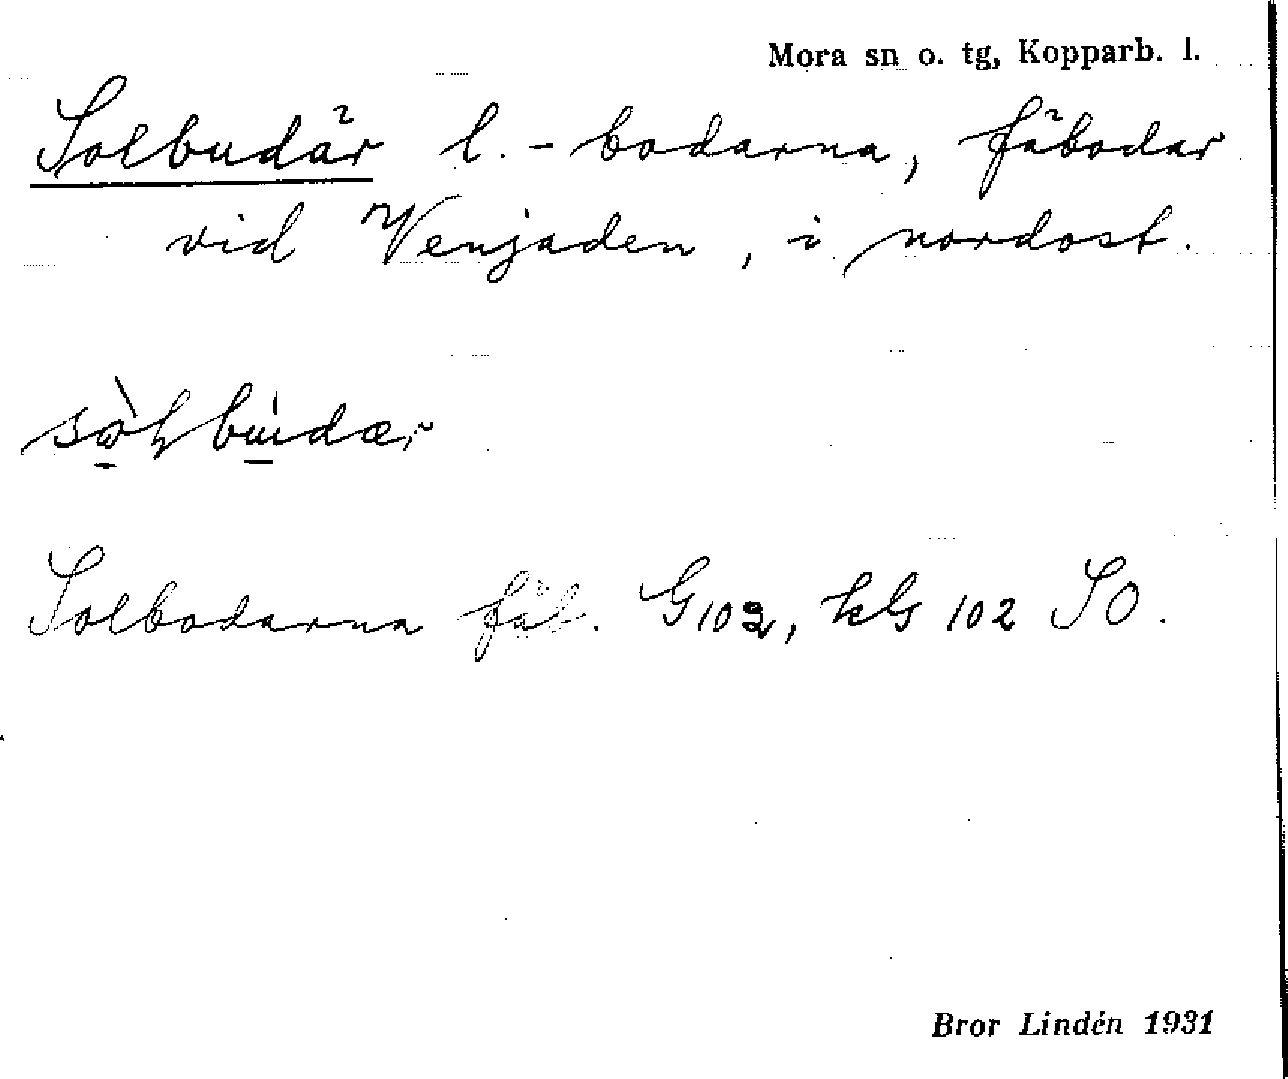 Mora sn o. tg, Kopparb. l.
Solbudär l. -bodarna, fäbodar
vid Venjaden, i nordost.
Solbodarna fäb. G102, kls 102 SO.
Bror Lindén 1931